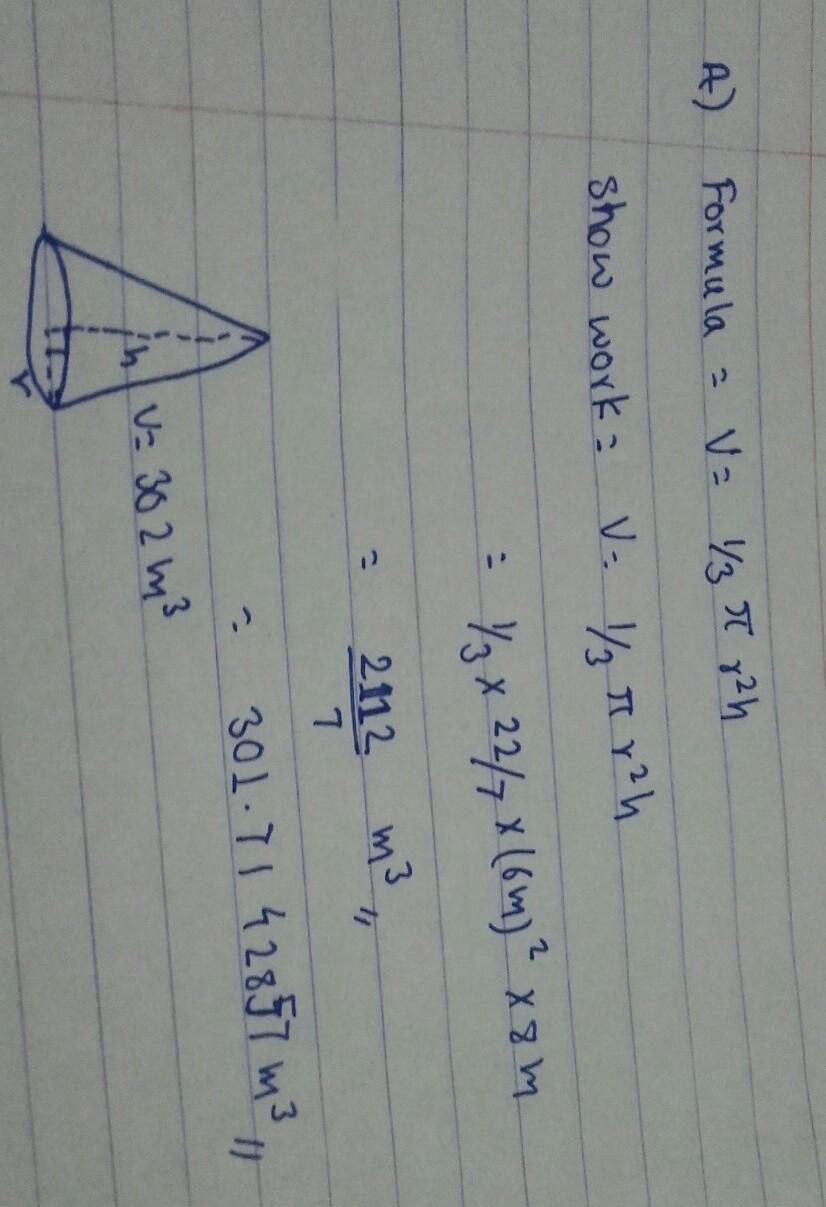 A) Formula = V = 1/3 π r²h
Show work = V = 1/3 π r²h
= 1/3 x 22/7 x (6m)² x 8m
= 2112/7 m³ 〃
= 301.7142857 m³ 〃
V = 302 m³
h
r